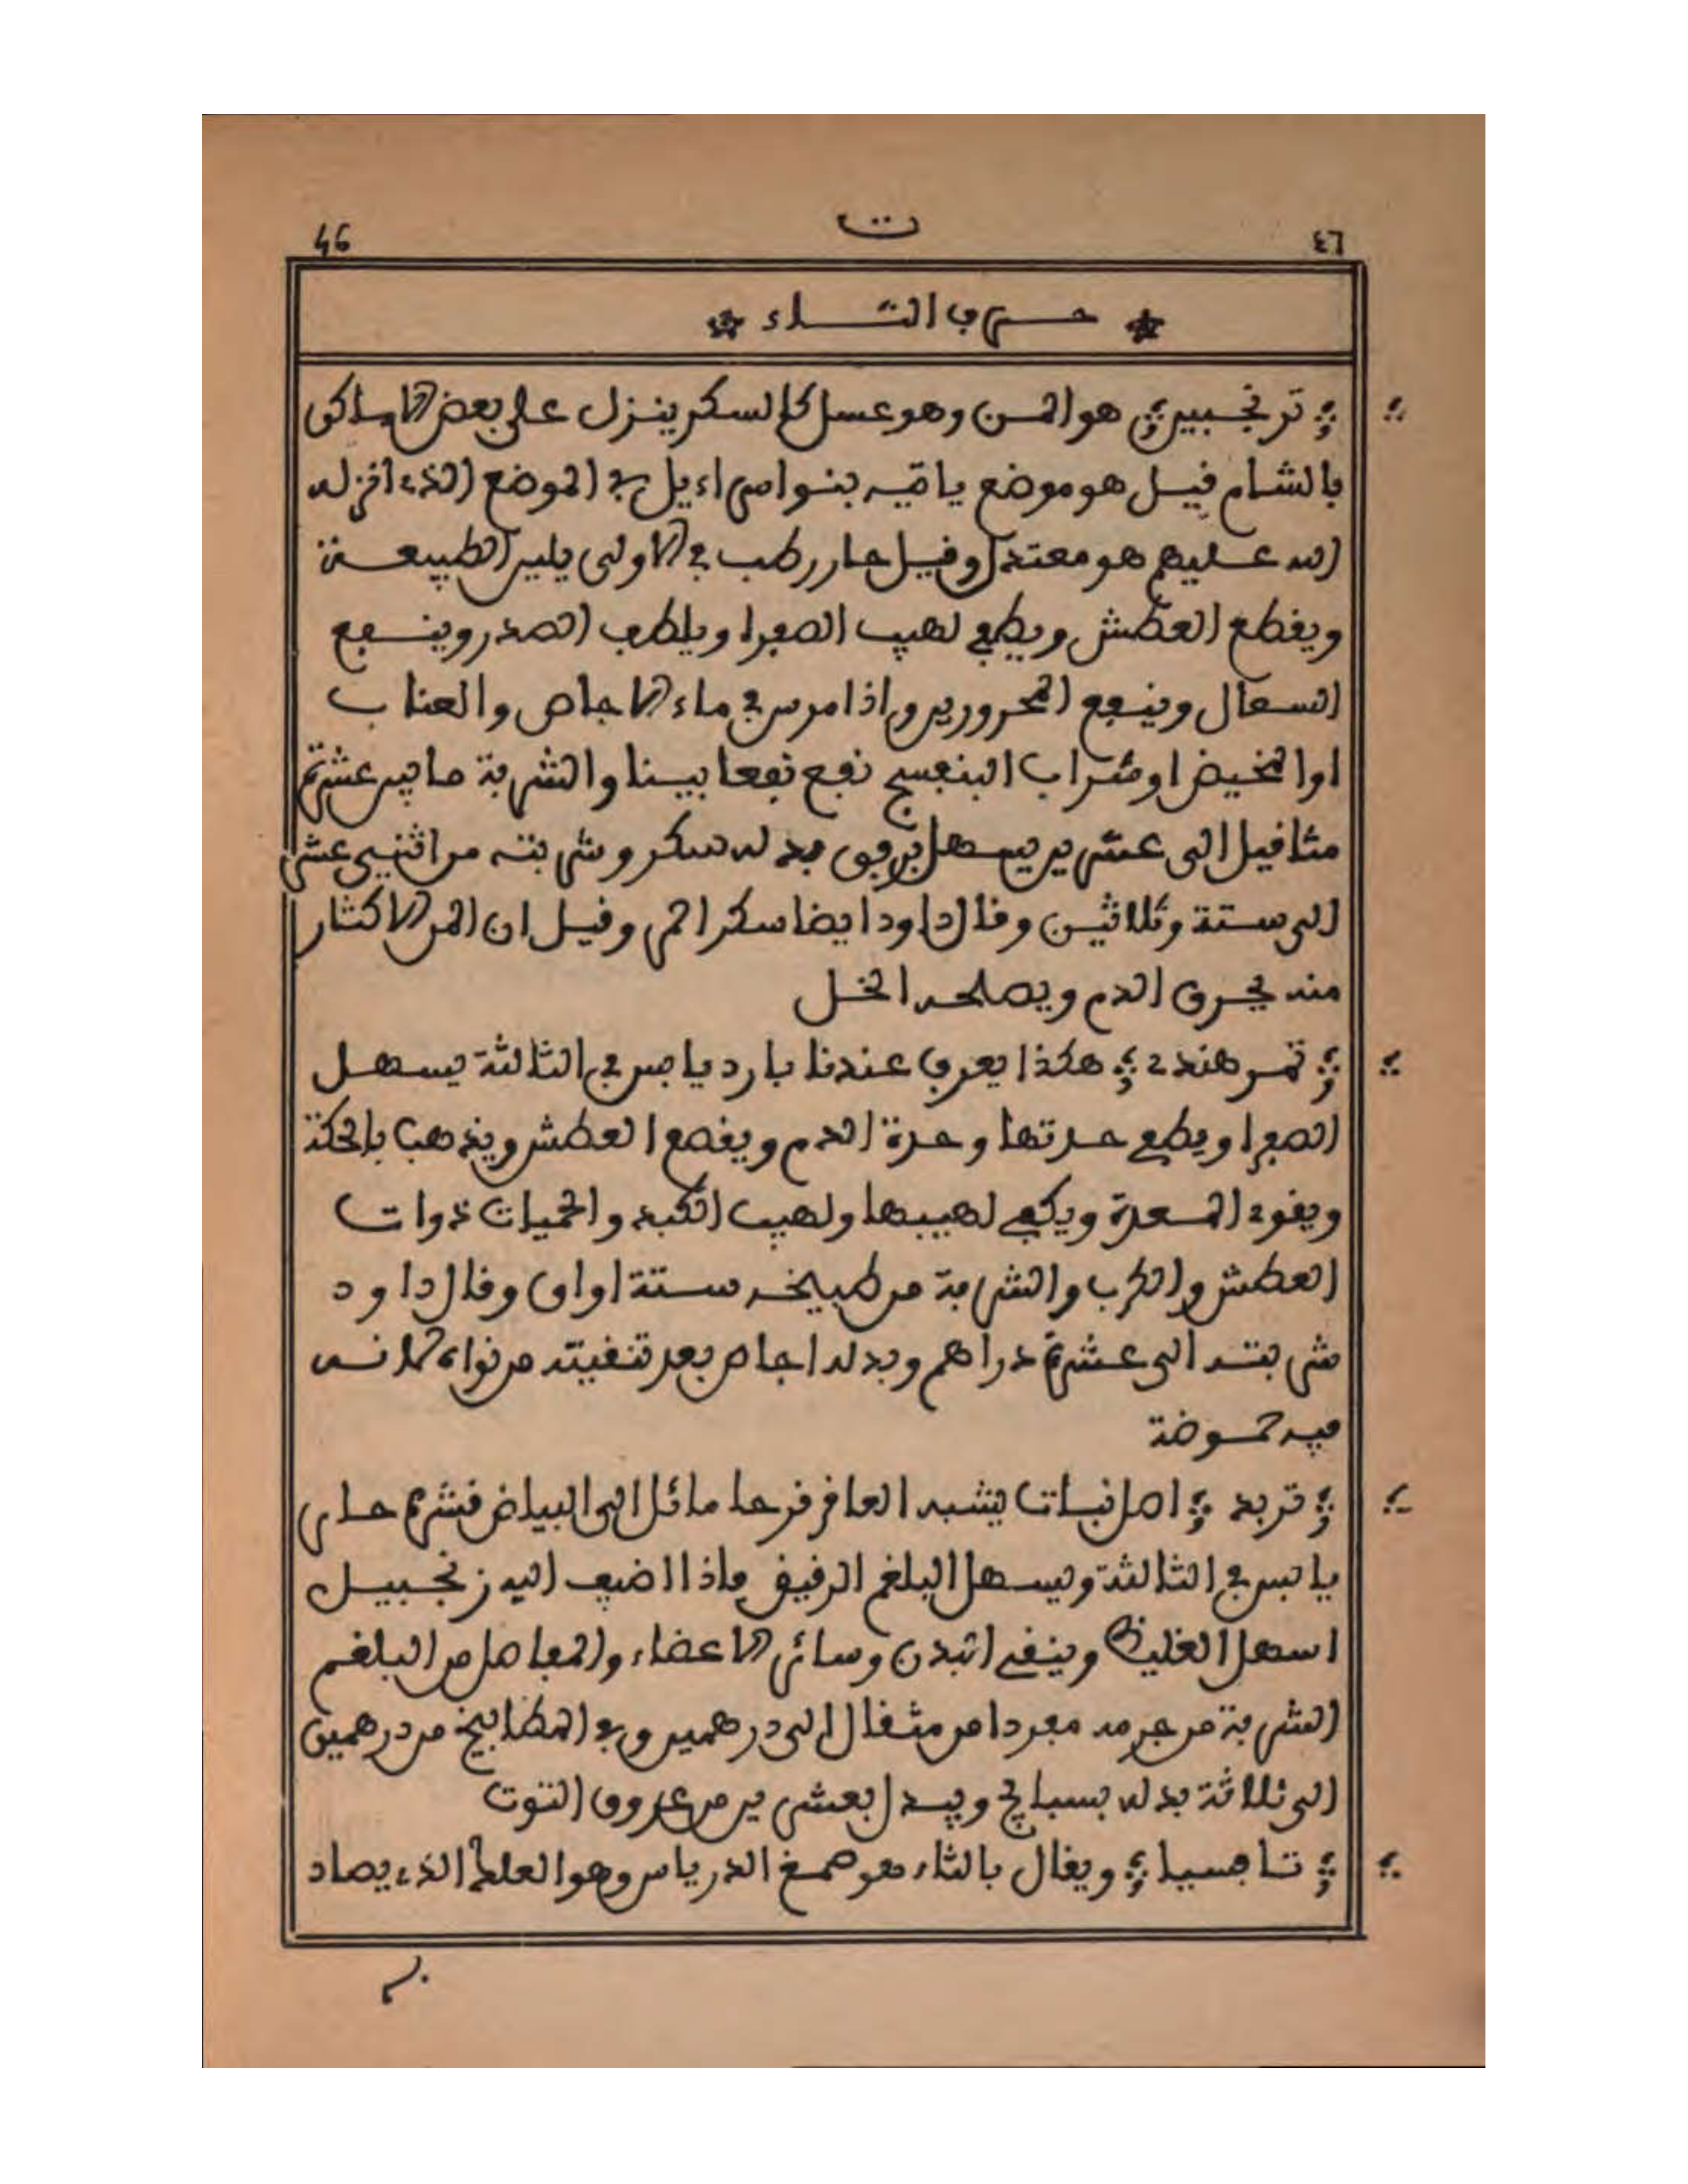 46 ت ٤٦
حرف التاء
ترنجبين هو المن وهو عسل كالسكر ينزل على بعض الاماكن
بالشام قيل هو موضع ياتيه بنوا اسراءيل في الموضع الذي انزله
الله عليهم هو معتدل وقيل حار رطب في الاولى يلين الطبيعة
ويقطع العطش ويطفي لهيب الصفرا ويلطف الصدر وينفع
السعال وينفع المحرورين واذا مرس في ماء الاجاص والعناب
او المخيض او شراب البنفسج نفع نفعا بينا والشربة ما بين عشرة
مثاقيل الى عشرين يسهل برفق بدله سكر وشربته من اثنى عشر
الى ستة وثلاثين وقال داود ايضا سكر احمر وقيل ان المن الاكثار
منه يحرق الدم ويصلحه الخل
تمر هندي هكذا يعرف عندنا بارد يابس في الثالثة يسهل
الصفرا ويطفي حدتها وحدة الدم ويقمع العطش ويذهب بالحكة
ويقوي المعدة ويكفي لهيبها ولهيب الكبد والحميات ذوات
العطش والكرب والشربة من طبيخه ستة اواق وقال داود
شربته الى عشرة دراهم وبدله اجاص بعد تنقيته من نواه لانه
فيه حموضة
تربد اصل نبات يشبه العاقرقرحا مائل الى البياض قشره حار
يابس في الثالثة ويسهل البلغم الرقيق فاذا اضيف اليه زنجبيل
اسهل الغليظ وينقي البدن وسائر الاعضاء والمفاصل من البلغم
الشربة من جرمه مفردا من مثقال الى درهمين وفي المطابيخ من درهمين
الى ثلاثة بدله بسبايج ويبدل بعشرين من عروق التوت
تافسيا ويقال بالثاء هو صمغ الدرياس وهو العلك الذي يصاد